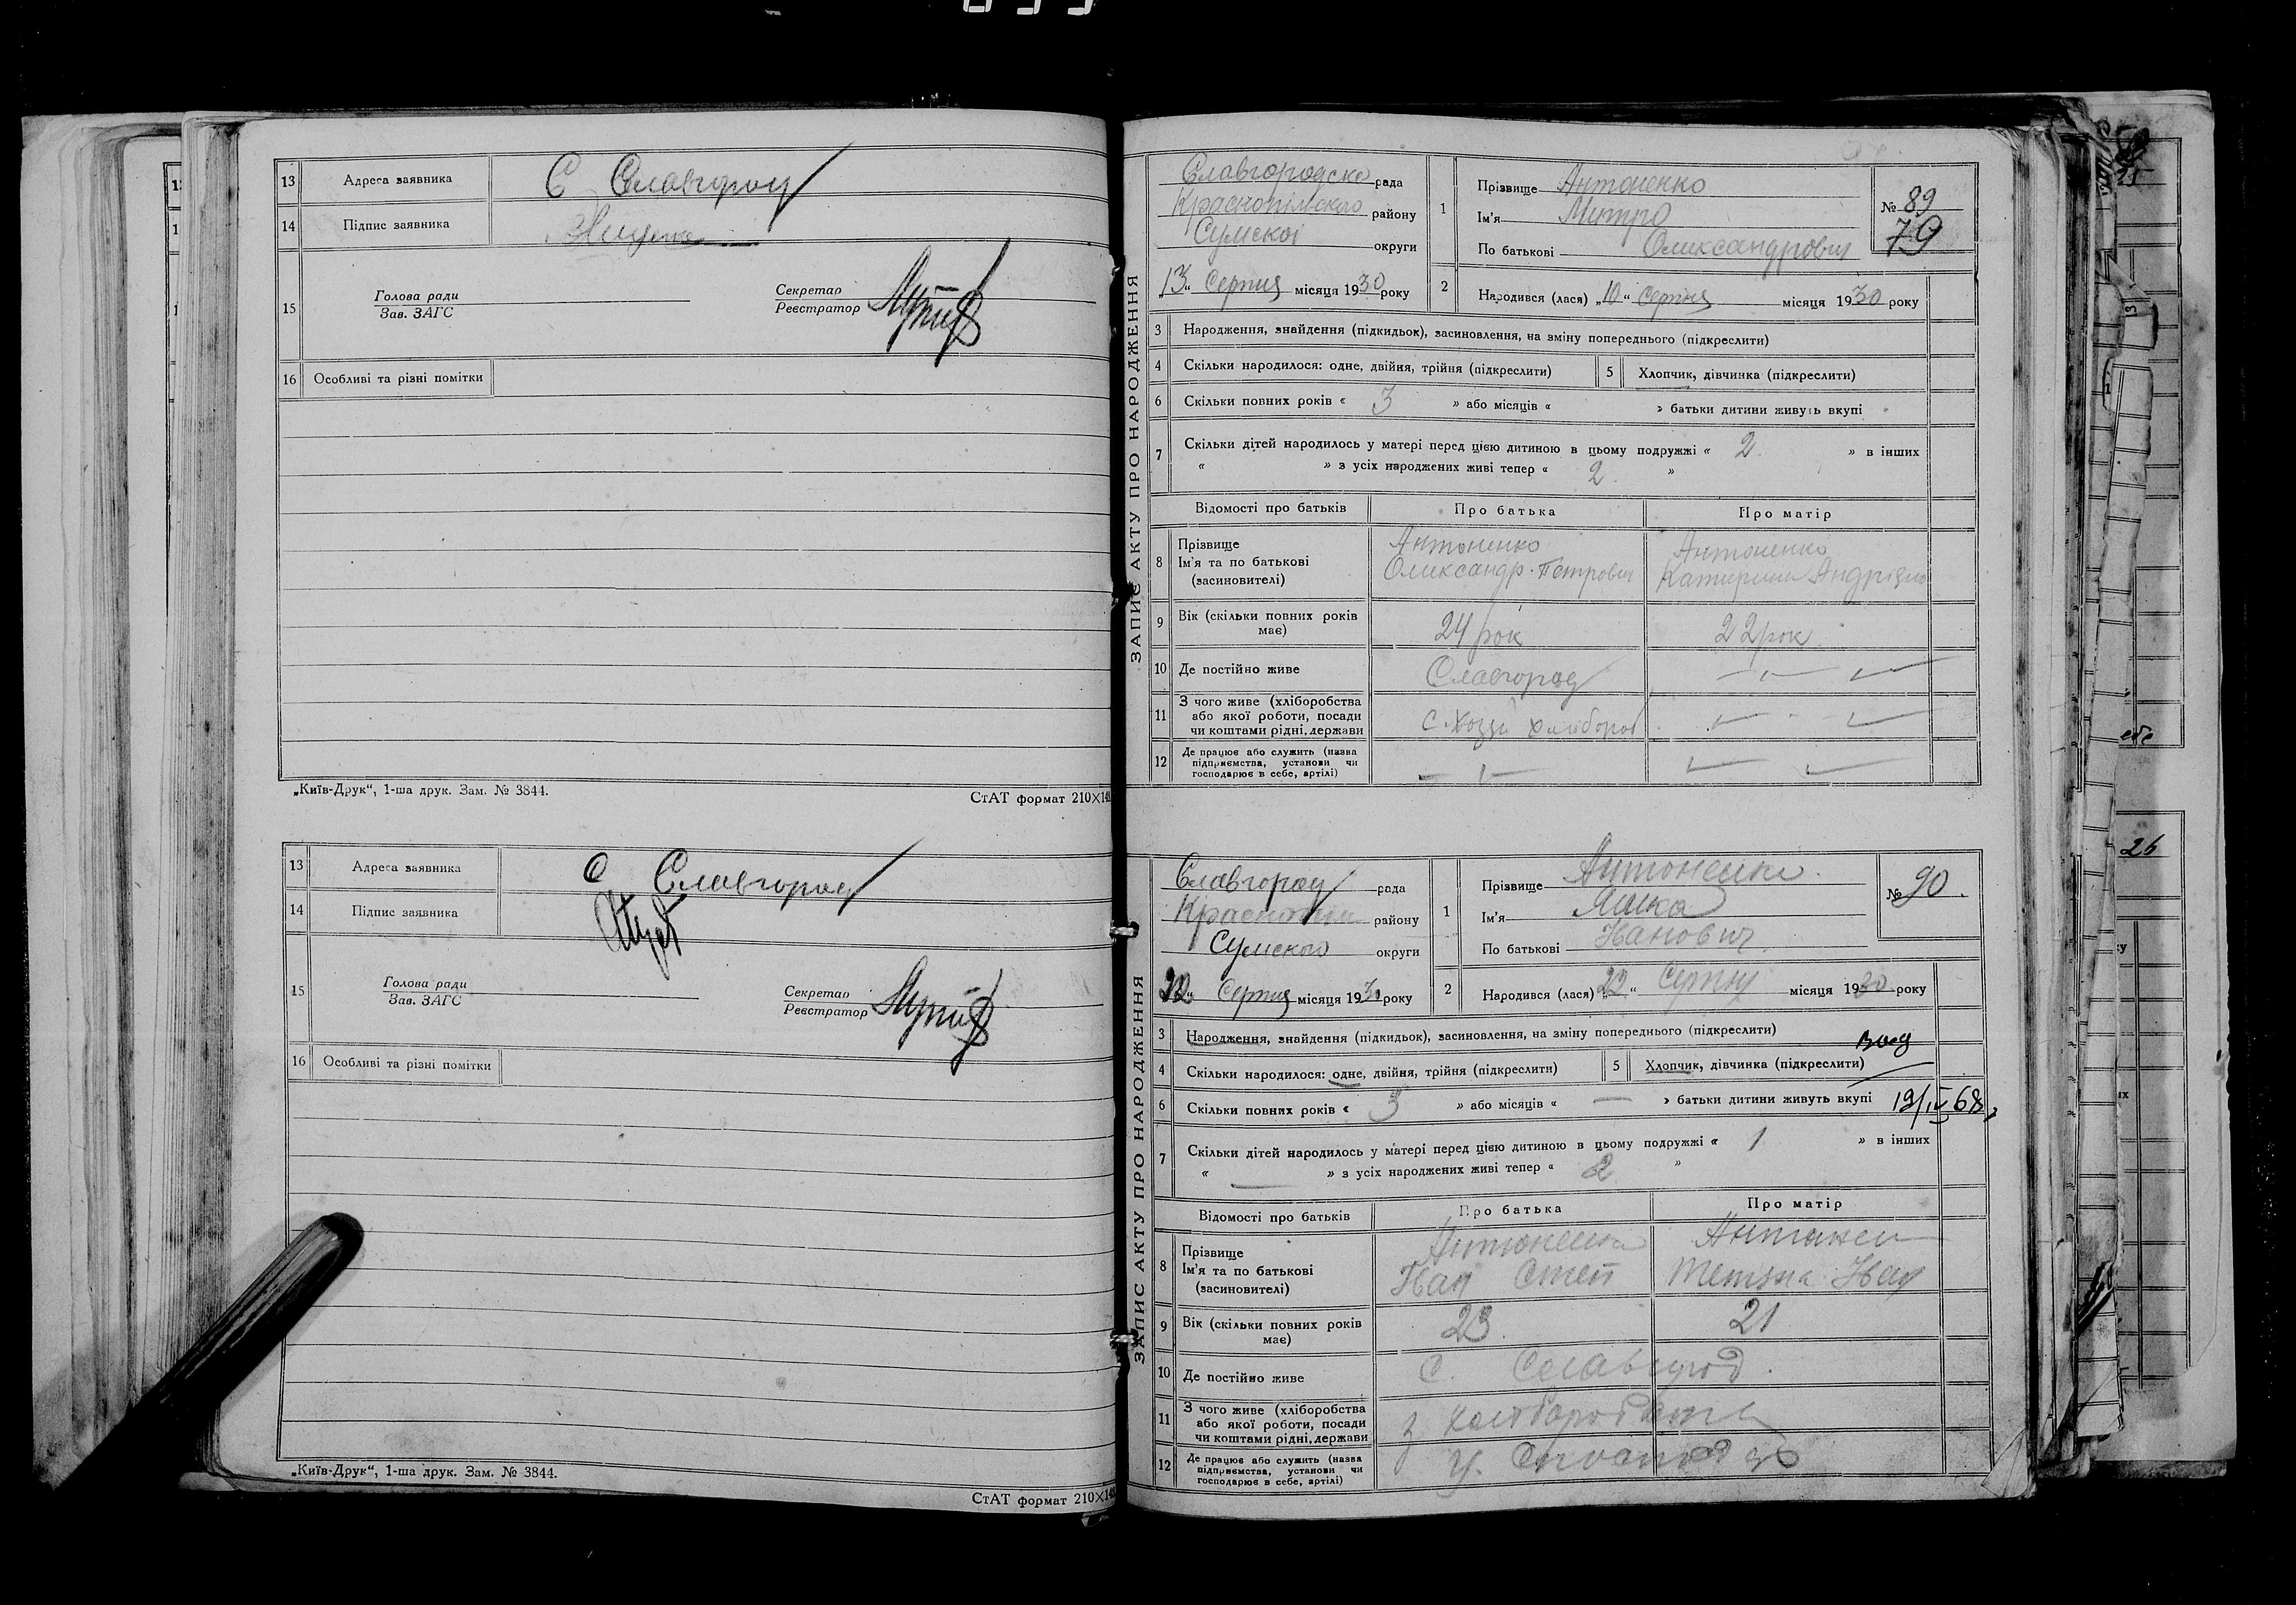 13 Адреса заявника С Славгород
14 Підпис заявника
15 Голова ради
Зав. ЗАГС
Секретар
Реєстратор
16 Особливі та різні помітки
„Київ-Друк“, 1-ша друк. Зам. № 3844.
СтАТ формат 210×148
13 Адреса заявника С Славгород
14 Підпис заявника
15 Голова ради
Зав. ЗАГС
Секретар
Реєстратор
16 Особливі та різні помітки
„Київ-Друк“, 1-ша друк. Зам. № 3844.
СтАТ формат 210×148
ЗАПИС АКТУ ПРО НАРОДЖЕННЯ
Славгородска рада
Краснопільского району
Сумскоі округи
„13“ Серпня місяця 1930 року
1 Прізвище Антоненко
Ім'я Митро
По батькові Олександрович
№ 89
79
2 Народився (лася) „10“ Серпня місяця 1930 року
3 Народження, знайдення (підкидьок), засиновлення, на зміну попереднього (підкреслити)
4 Скільки народилося: одне, двійня, трійня (підкреслити)
5 Хлопчик, дівчинка (підкреслити)
6 Скільки повних років « 3 » або місяців « » батьки дитини живуть вкупі
7 Скільки дітей народилось у матері перед цією дитиною в цьому подружжі « 2 » в інших
« » з усіх народжених живі тепер « 2 »
Відомості про батьків Про батька Про матір
8 Прізвище
Ім'я та по батькові
(засиновителі)
Антоненко
Олександр Петрович
Антоненко
Катерина Андріївна
9 Вік (скільки повних років
має)
24 рок 22 рок
10 Де постійно живе Славгород
11 З чого живе (хліборобства
або якої роботи, посади
чи коштами рідні, держави
12 Де працює або служить (назва
підприємства, установи чи
господарює в себе, артілі)
ЗАПИС АКТУ ПРО НАРОДЖЕННЯ
Славгород рада
району
Сумского округи
22 Серпня місяця 1930 року
1 Прізвище Антоненко
Ім'я
По батькові Іванович
№ 90.
2 Народився (лася) „22“ Серпня місяця 1930 року
3 Народження, знайдення (підкидьок), засиновлення, на зміну попереднього (підкреслити)
4 Скільки народилося: одне, двійня, трійня (підкреслити)
5 Хлопчик, дівчинка (підкреслити)
6 Скільки повних років « 3 » або місяців « — » батьки дитини живуть вкупі
19/IV 68
7 Скільки дітей народилось у матері перед цією дитиною в цьому подружжі « 1 » в інших
« — » з усіх народжених живі тепер « 2 »
Відомості про батьків Про батька Про матір
8 Прізвище
Ім'я та по батькові
(засиновителі)
Антоненко
Іван Степ
Антонен
Тетяна Іван
9 Вік (скільки повних років
має)
23 21
10 Де постійно живе С. Славгород
11 З чого живе (хліборобства
або якої роботи, посади
чи коштами рідні, держави
12 Де працює або служить (назва
підприємства, установи чи
господарює в себе, артілі)